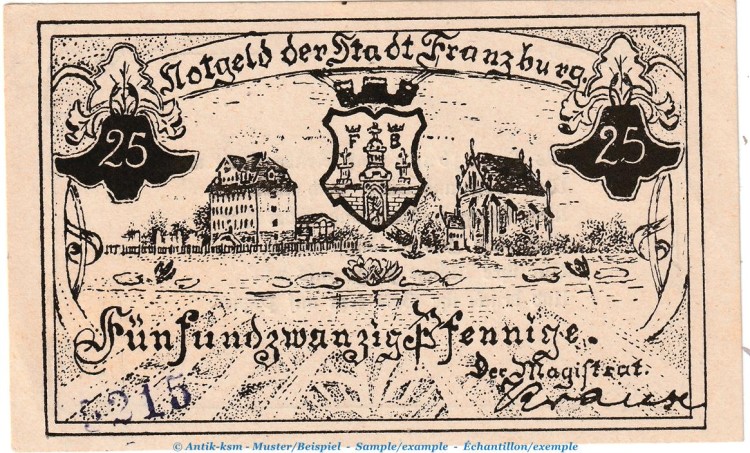 Notgeld der Stadt Franzburg.
25
25
F B
Fünfundzwanzig Pfennige.
Der Magistrat.
Krause
5215
© Antik-ksm - Muster/Beispiel - Sample/example - Échantillon/exemple